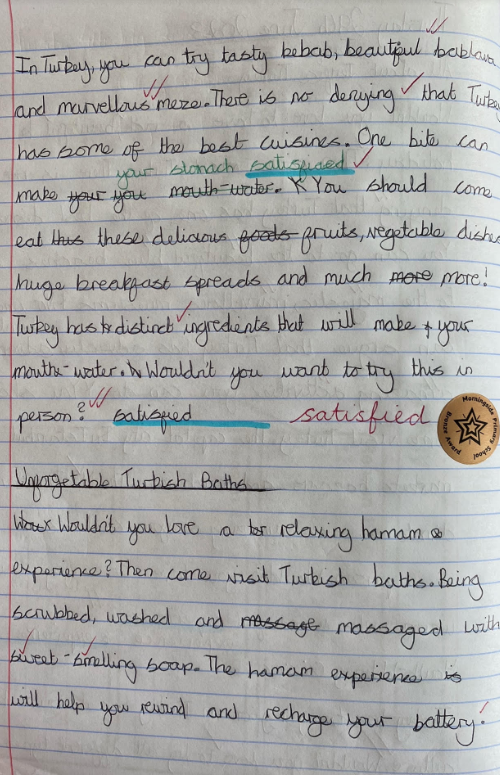 In Turkey, you can try tasty kebab, beautiful baklava
and marvellous meze. There is no denying that Turkey
has some of the best cuisines. One bite can
your stomach satisfiaed
make your you mouth-water. You should come
eat this these delicious foods fruits, vegetable dishes
huge breakfast spreads and much more more!
Turkey has distinct ingredients that will make your
mouth-water. Wouldn't you want to try this in
person? satisfied satisfied
Morningside Primary School
Unforgetable Turkish Baths
Wouldn't you love a relaxing hamam
experience? Then come visit Turkish baths. Being
scrubbed, washed and massage massaged with
sweet-smelling soap. The hamam experience is
will help you rewind and recharge your battery.